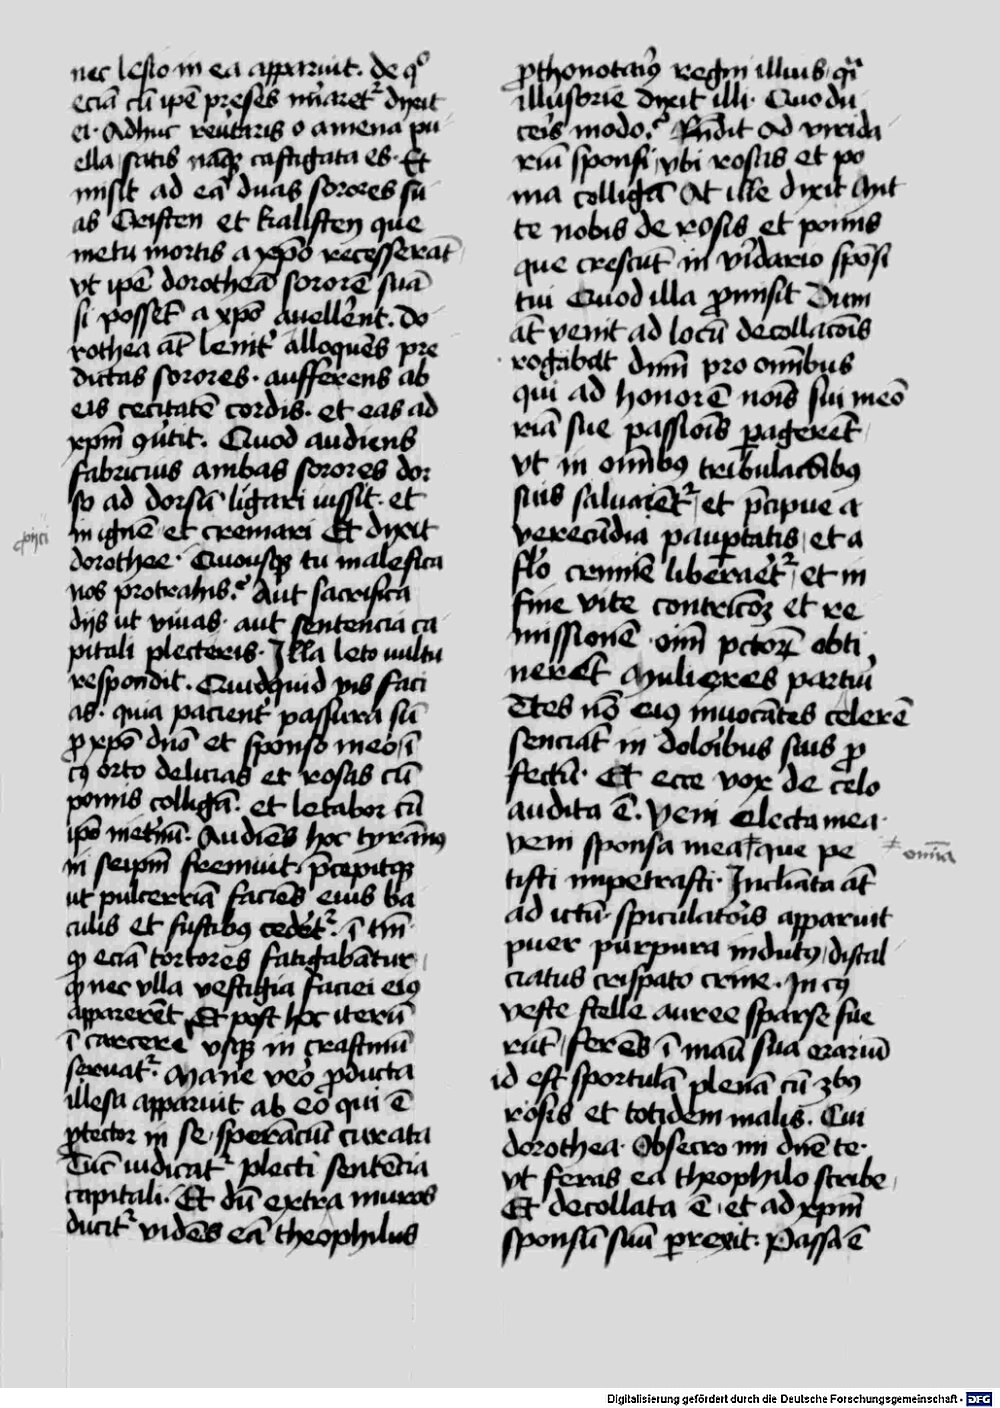 nec lesio in ea apparuit. de qͦ
eciā cū ipē preses mirāret᷑ dixit
ei. Adhuc reuīaris o amena pu
ella satis nāq̄ castigata es. Et
misit ad eā duas sorores su
as Cristen et kallisten que
metu mortis a xp̄o recesserāt
vt ipē dorotheā sororē suā
si posset a xp̄o auellēnt. Do
rothea āt lenit᷑ alloquēs pre
dictas sorores. aufferens ab
eis cecitatē cordis. et eas ad
xp̄m ꝯūtit. Quod audiens
fabricius ambas sorores dor
so ad dorsū ligari iussit. et
in ignē et cremari Et dixit
dorothee. Quousq̄ tu malefica
nos protrahis.᷑ Aut sacrifica
dijs ut viuas. aut sentencia ca
pitali plecteris. Illa leto uultu
respondit. Quidquid vis faci
as. quia pacient᷑ passura sū
ꝑ xp̄o dn̄o et sponso meo, ī
cꝰ orto delicias et rosas cū
pomis colligā. et letabor cū
ip̄o inet᷑nū. Audiēs hoc tyrānꝰ
in seip̄m fremuit. p̄cepitq̄
ut pulcerriā faciēs eius ba
culis et fustibꝰ cedēt᷑. ī tm̄
ꝙ eciā tortores fatigabātur
ꝙ nec vlla vestigia faciei eiꝰ
appareēt. Et post hoc iterū
ī carcerē vsq̄ in crastinū
seruat᷑. Mane veō ꝓducta
illesa apparuit ab eo qui ē
ꝓtector in se sperāciū curata
Tūc iudicat᷑ plecti sentēcia
capitali. Et dū extra muros
ducit᷑ vidēs eā theophilus
ꝓthonotariꝰ regni illius q̄i
illusorie dixit illi. Quo du
ceris modo.᷑ Rn̄dit Ad virida
riū sponsi, vbi rosas et po
ma colligā At ille dixit Mit
te nobis de rosis et pomis
que crescūt in v̄idario spōsi
tui Quod illa ꝓmisit Dum
āt venit ad locū decollacōis
rogabat dnm̄ pro om̄ibus
qui ad honorē nōis sui meō
riā sue passiōis ꝑagerēt
vt in om̄ibꝰ tribulacōibꝰ
suis saluarēt᷑, et p̄cipue a
verecūdia paup̄tatis, et a
flō crimīē liberaēt᷑, et in
fine vite contricōꝫ et re
missionē oīm pctoꝝ obti
nerēt Mulieres parturi
ētes nō eiꝰ inuocātes celerē
senciāt in doloribus suis ꝓ
fectū. Et ecce vox de celo
audita ē. Veni electa mea.
veni sponsa mea ǂ que pe
tisti impetrasti. Inclīata āt
ad ictū spiculatōis apparuit
puer purpura indutꝰ, discal
ciatus crispato crine. In cꝰ
veste stelle auree sparse sue
rūt, ferēs ī māu sua orariū
id est sportulā plenā cū ꝫbꝰ
rosis et totidem malis. Cui
dorothea. Obsecro mi dn̄e te.
vt feras ea theophilo scribe,
Et decollata ē, et ad xp̄m
sponsū suū ꝑrexit. Passa ē
ǂ omīa